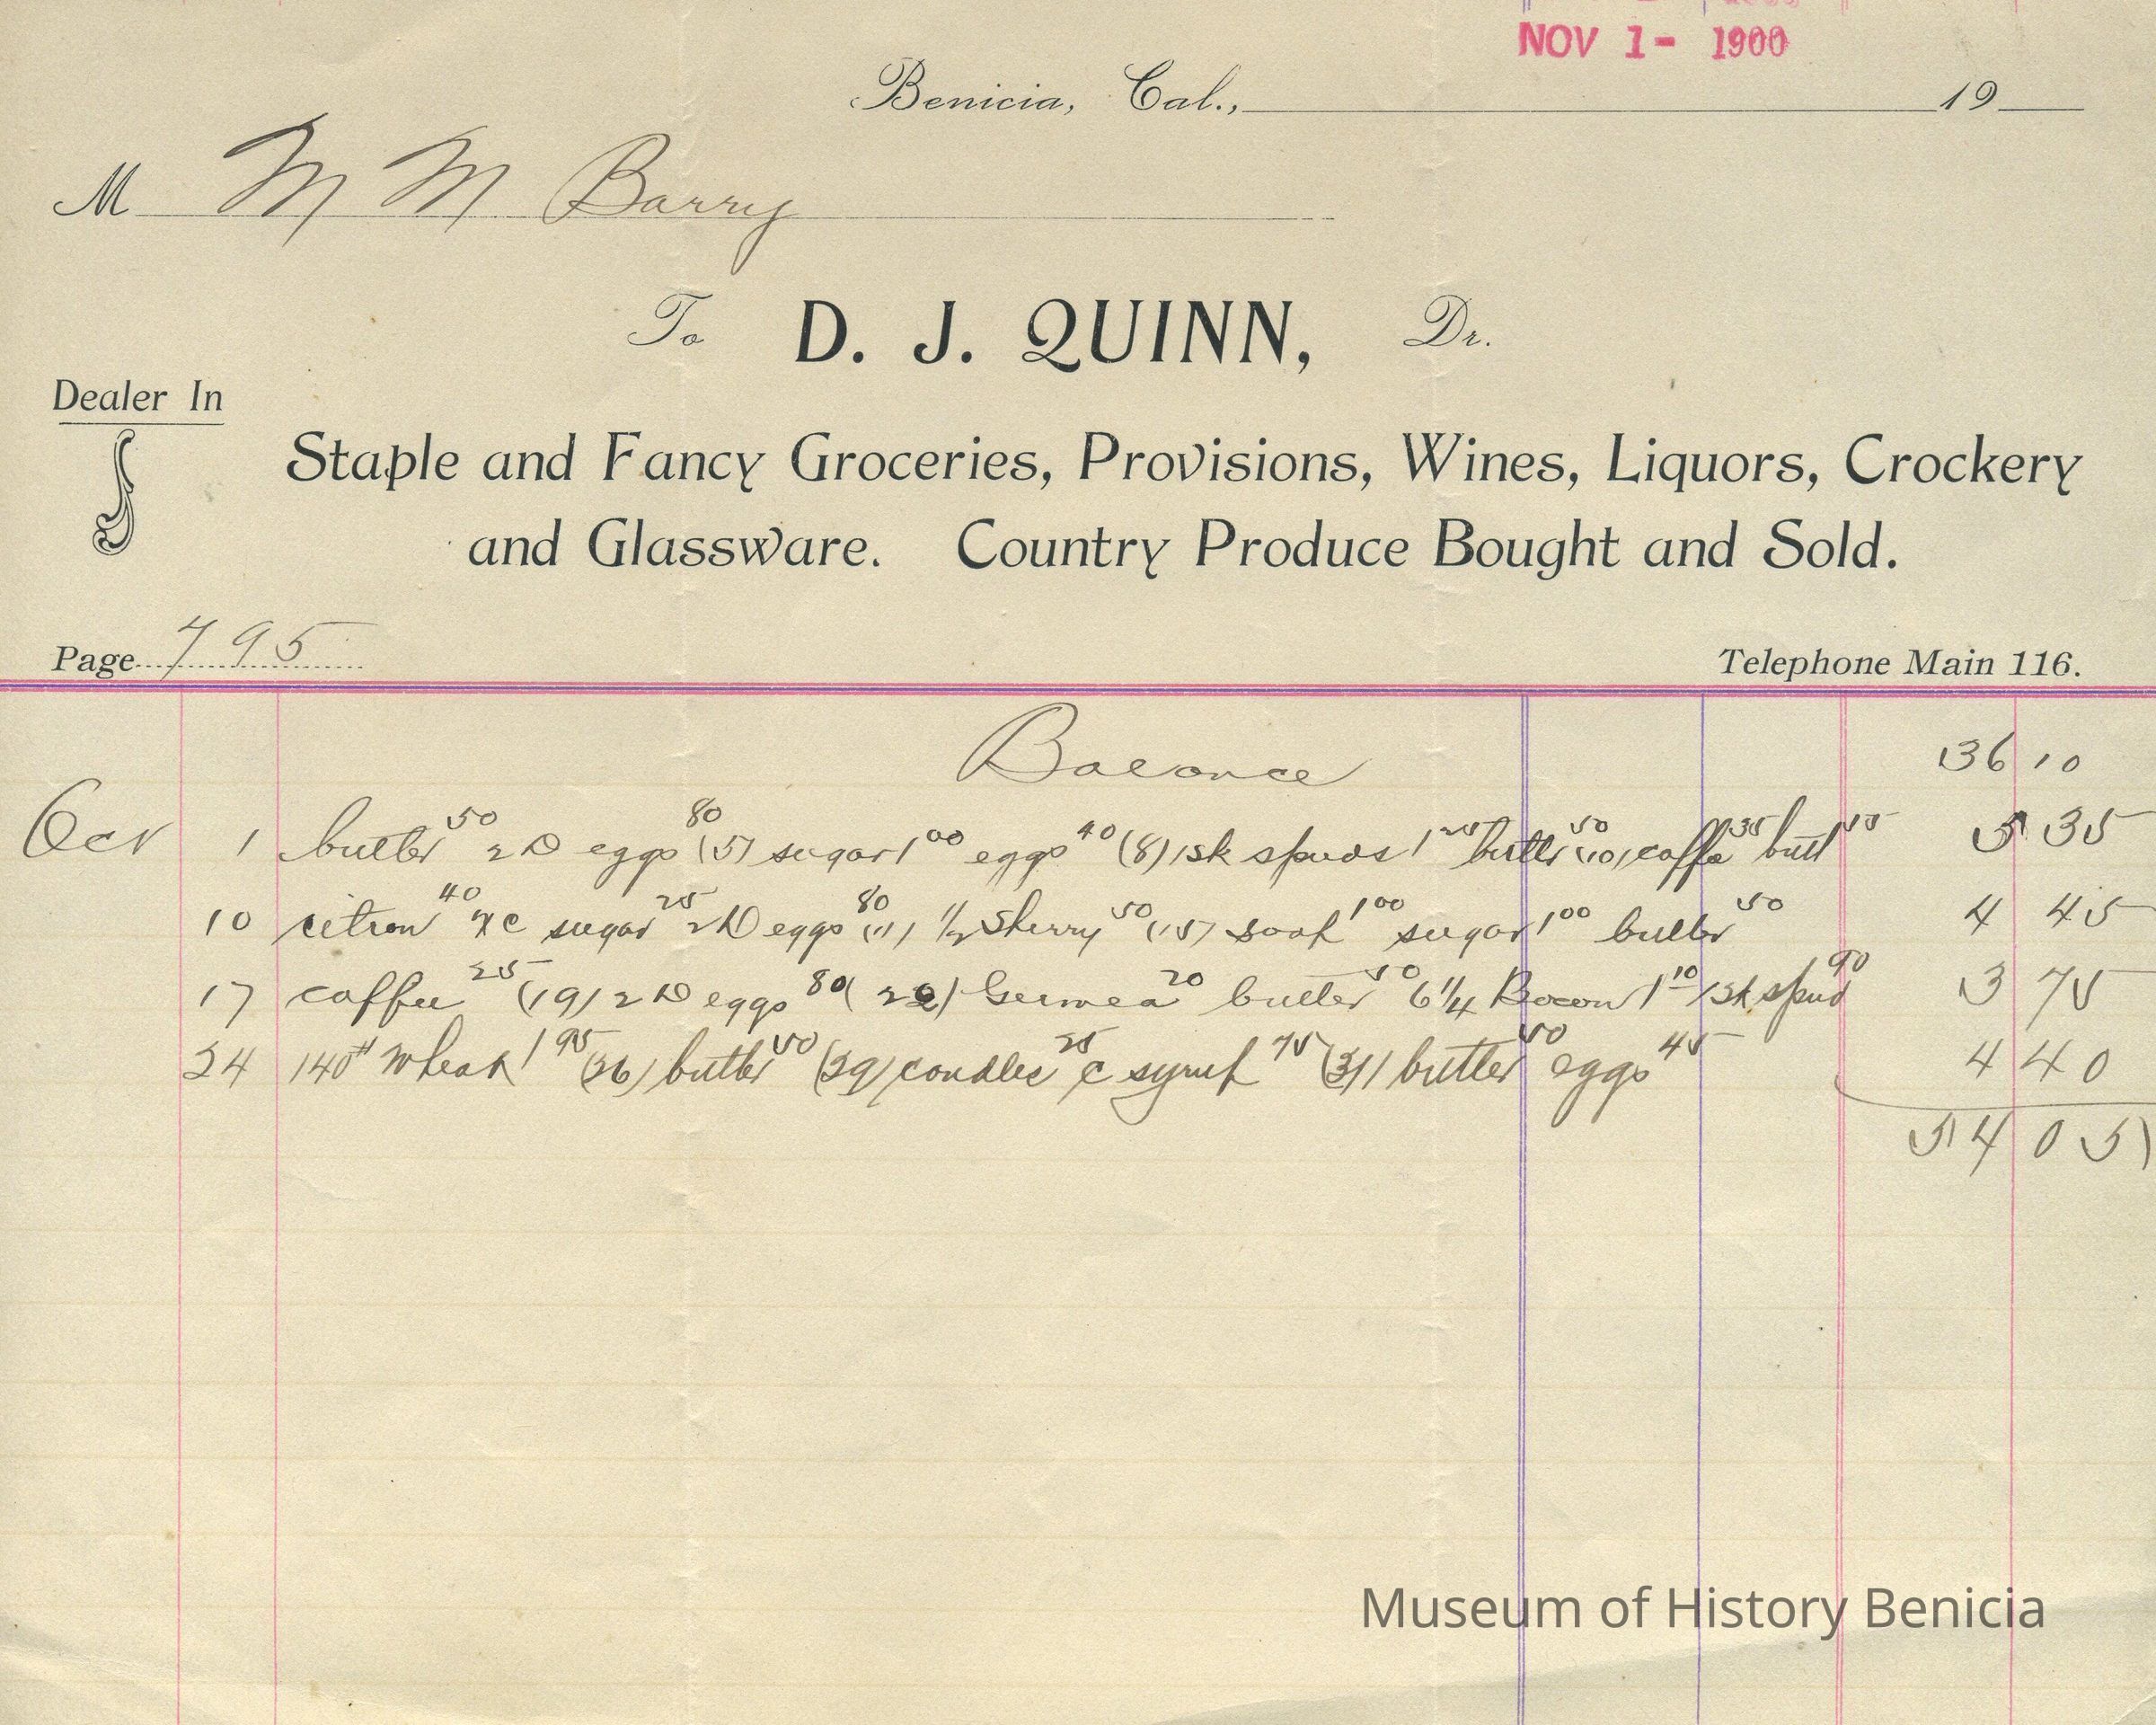 NOV 1- 1900
Benicia, Cal., 19
M M M Barry
To D. J. QUINN, Dr.
Dealer In
Staple and Fancy Groceries, Provisions, Wines, Liquors, Crockery
and Glassware. Country Produce Bought and Sold.
Page 795
Telephone Main 116.
Balance 36 10
Oct 1 butter 50 2 D eggs 80 (5) sugar 1 00 eggs 40 (8) 1 sk spuds 1 25 butter 50 (10) coffe 35 butt 55 5 35
10 citron 40 sugar 25 2 D eggs 80 (11) 1/2 Sherry 50 (15) soap 1 00 sugar 1 00 butter 50 4 45
17 coffee 25 (19) 2 D eggs 80 (22) Germea 20 butter 50 6 1/4 Bacon 1 10 1 sk spud 90 3 75
24 140# Wheat 1 95 (26) butter 50 (29) candles 25 c syrup 75 (31) butter 50 eggs 45 4 40
54 05
Museum of History Benicia